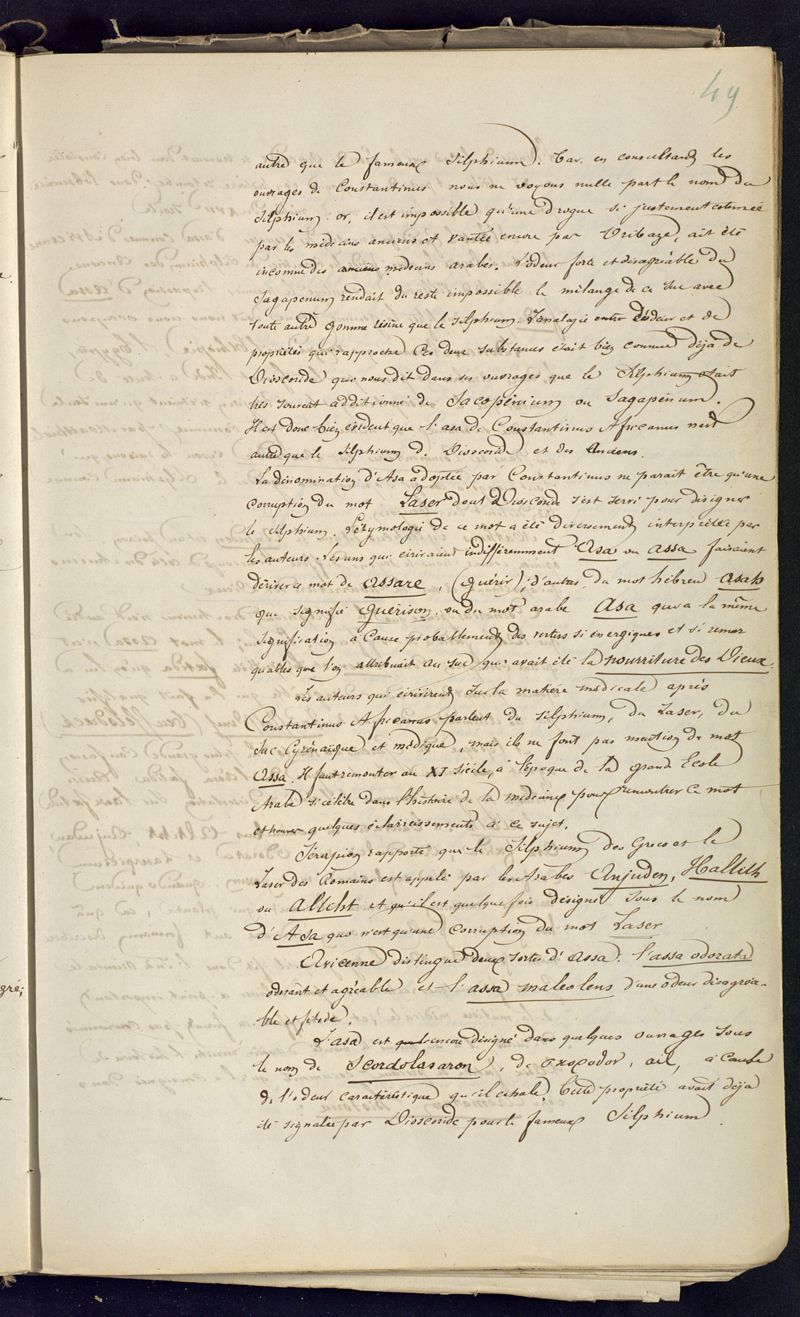 49
autre que le fameux Silphium. Car en consultant les
ouvrages de Constantinus, nous ne voyons nulle part le nom du
Silphium. or, il est impossible qu'une drogue si justement estimée
par les médecins anciens et vantée encore par Oribaze, ait été
inconnue des anciens médecins arabes. L'odeur forte et désagréable du
Sagapenum rendait du reste impossible le mélange de ce suc avec
toute autre gomme résine que le Silphium. L'analogie entre l'odeur et de
propriétés qui rapproche ces deux substances était bien connue déjà de
Dioscoride qui nous dit dans ses ouvrages que le Silphium était
très souvent additionné de Sacopénium ou Sagapénum.
Il est donc bien évident que l'asa de Constantinus Africanus n'est
autre que le Silphium de Dioscoride et des Anciens.
La dénomination d'Asa adoptée par Constantinus ne parait être qu'une
corruption du mot Laser dont Dioscoride s'est servi pour désigner
le silphium. L'étymologie de ce mot a été diversement interprétée par
les auteurs. Les uns qui écrivaient indifféremment Asa ou assa faisaient
dériver ce mot de assare, (guérir); d'autres du mot hébreu asah
qui signifie guérison, ou du mot arabe Asa qui a la même
signification à cause probablement des vertus si énergiques et si remar
quables que l'on attribuait au suc qui avait été la nourriture des Dieux.
Les auteurs qui écrivirent sur la matière médicale après
Constantinus Africanus parlent du Silphium, du Laser, du
Suc Cyrénaïque et médique, mais ils ne font pas mention du mot
Assa. Il faut remonter au XI siècle, à l'époque de la grande Ecole
Arabe si célèbre dans l'histoire de la médecine pour rencontrer ce mot
et trouver quelques éclaircissements à ce sujet.
Sérapion rapporte que le Silphium des Grecs et le
Laser des Romains est appelé par les Arabes Anjuden, Hallith
ou Altiht et qu'il est quelquefois désigné sous le nom
d'Asa qui n'est qu'une corruption du mot Laser
Avicenne distingue deux sortes d'Assa. l'assa odorata
odorant et agréable et l'assa maleolens d'une odeur désagréa-
ble et fétide.
L'asa est encore désigné dans quelques ouvrages sous
le nom de Scordolasaron, de σκοροδον, ail, à cause
de l'odeur caractéristique qu'il exhale. Cette propriété avait déjà
été signalée par Dioscoride pour le fameux Silphium.
gré;